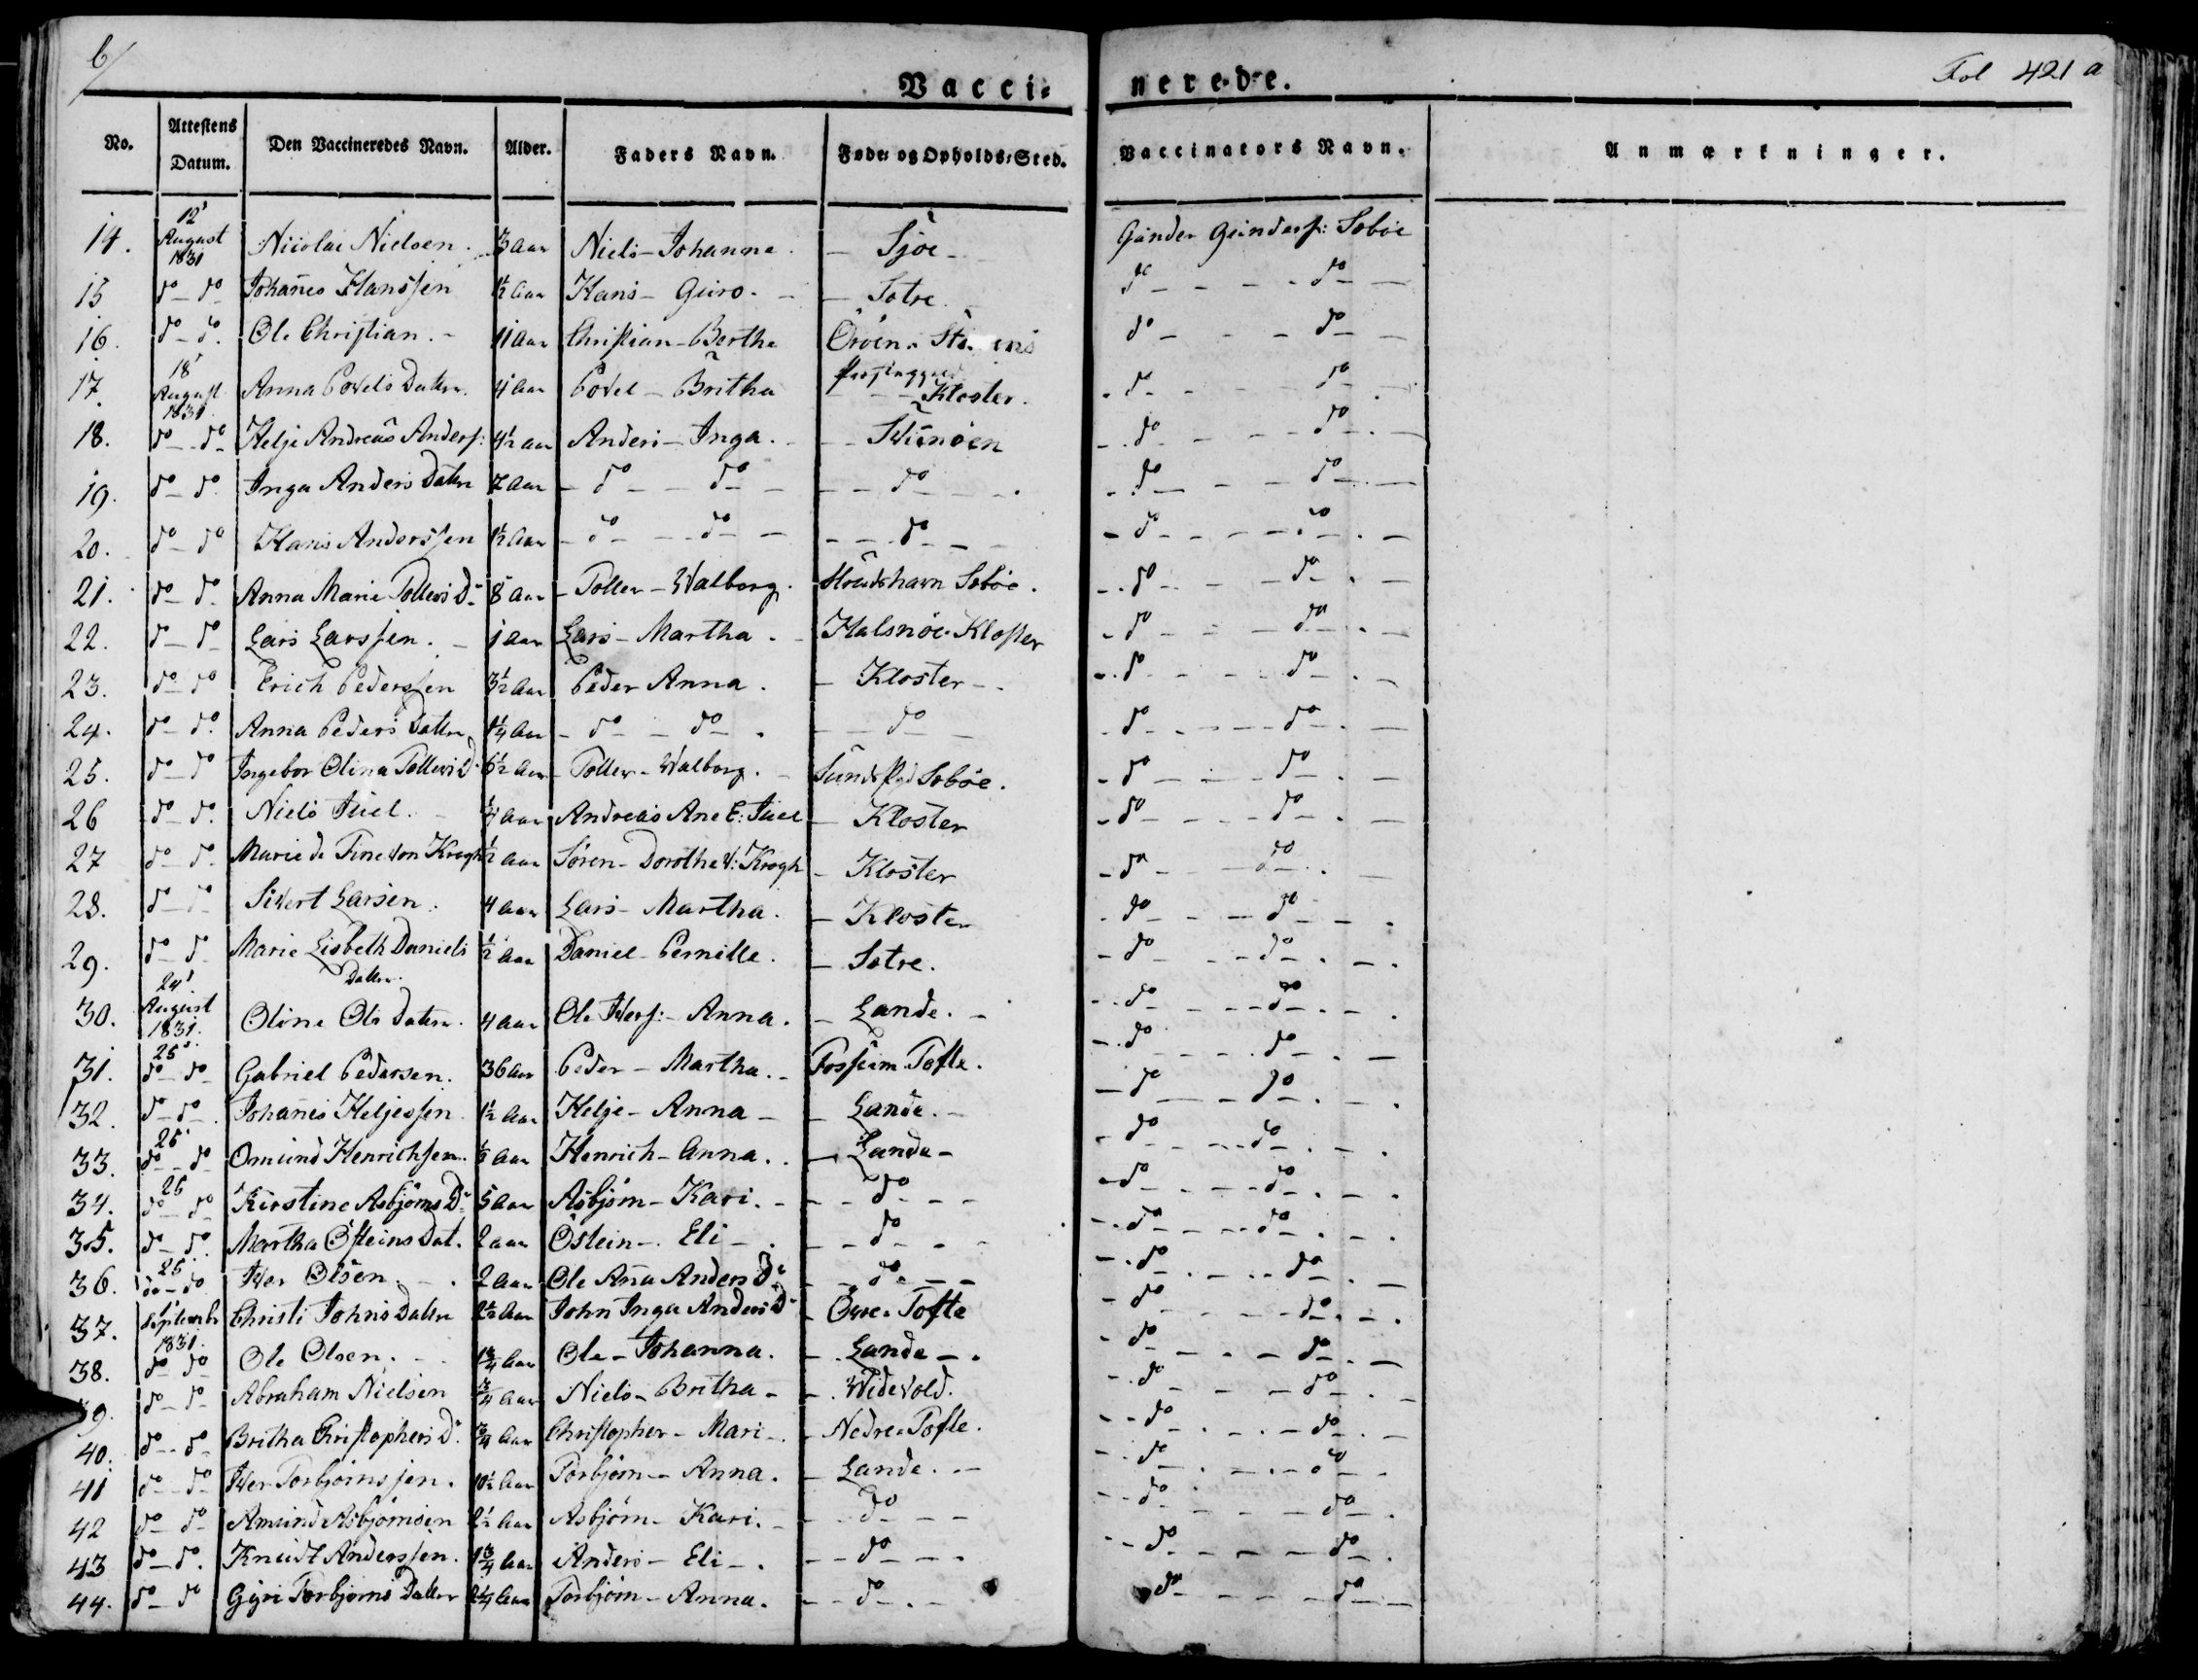 6/
Fol 421 a
Vacci-nerede.
No. Attestens Datum. Den Vaccineredes Navn. Alder. Faders Navn. Føde- og Opholds-Sted. Vaccinators Navn. Anmærkninger.
14. 12' August 1831 Nicolai Nielsen. 3 Aar Niels - Johanne - Sjøe - Gunder Gunders: Sebøe
15 do - do Johañes Hansen 1½ Aar Hans - Guro. - Sotre do - do
16. do - do. Ole Christian. - 11 Aar Christian - Berthe do - do
17. 18' August 1831. Anna Povels Datter. 4 Aar Povel - Britha Kloster. do - do
18. do - do Helje Andreas Anders: 4½ Aar Anders - Inga. do - do
19. do - do. Inga Anders Datter 7 Aar - do - do - do - do - do
20. do - do Hans Anderssen 1½ Aar - do - do - do - do - do
21. do - do. Anna Marie Tollers Dr 8 Aar - Toller - Walborg. Sebøe. do - do
22. do - do Lars Larssen. - 1 Aar Lars - Martha. - Halsnøe Kloster - do - do
23. do - do Erich Pederssen 3½ Aar Peder Anna. - Kloster - do - do
24. do - do. Anna Peders Datter 1¼ Aar - do - do. - do - do - do
25. do - do Ingebor Olina Tollers D. 6½ Aar - Toller - Walborg. - Sebøe. - do - do
26 do - do. Niels Juel. - ¼ Aar Andreas Ane E: Juel - Kloster - do - do
27 do - do. Marie de Fine von Krogh ½ Aar Søren - Dorothe v: Krogh - Kloster - do - do
28. do - do Sivert Larsen. 4 Aar Lars - Martha. - Kloster - do - do
29. do - do Marie Lisbeth Daniels Datter. ½ Aar Daniel - Pernille. - Sotre. - do - do
30. 24' August 1831. Oline Ols Datter. 4 Aar Ole Ivers: - Anna. - Lande. - do - do
31. 25' do - do Gabriel Pedersen. 36 Aar Peder - Martha. - Tofte. - do - do
32. do - do. Johañes Heljessen 1½ Aar Helje - Anna - Lande. - do - do
33. 25' do - do Omund Henrichsen. Aar Henrich - Anna. - Lande - - do - do
34. 25 do - do Kirstine Asbjørns Dr 5 Aar Asbjørn - Kari. - do - do - do
35. do - do. Martha Østeins Dat. 2 Aar Østein - Eli - . - do - do - do
36. 25' do - do Iver Olsen. - . 2 Aar Ole Aña Anders Dr - do - do - do
37. 1' Septembr 1831. Christi Johns Datter 2½ Aar John Inga Anders Dr - Øvre Tofte - do - do
38. do - do Ole Olsen. - 1¾ Aar Ole - Johanna. - Lande - . - do - do
39. do - do Abraham Nielsen ¾ Aar Niels - Britha - - Widevold. - do - do
40. do - do Britha Christophers D. ¾ Aar Christopher - Mari - . - Nedre Tofte. - do - do
41 do - do Iver Torbjørnssen. 10½ Aar Torbjørn - Anna. - Lande. - do - do
42 do - do Amund Asbjørnsen 2½ Aar Asbjørn - Kari. - do - do - do
43 do - do. Knudt Anderssen. 1¾ Aar Anders - Eli - . - do - do - do
44. do - do Gyri Torbjørns Datter 2¼ Aar Torbjørn - Anna. - do - do - do